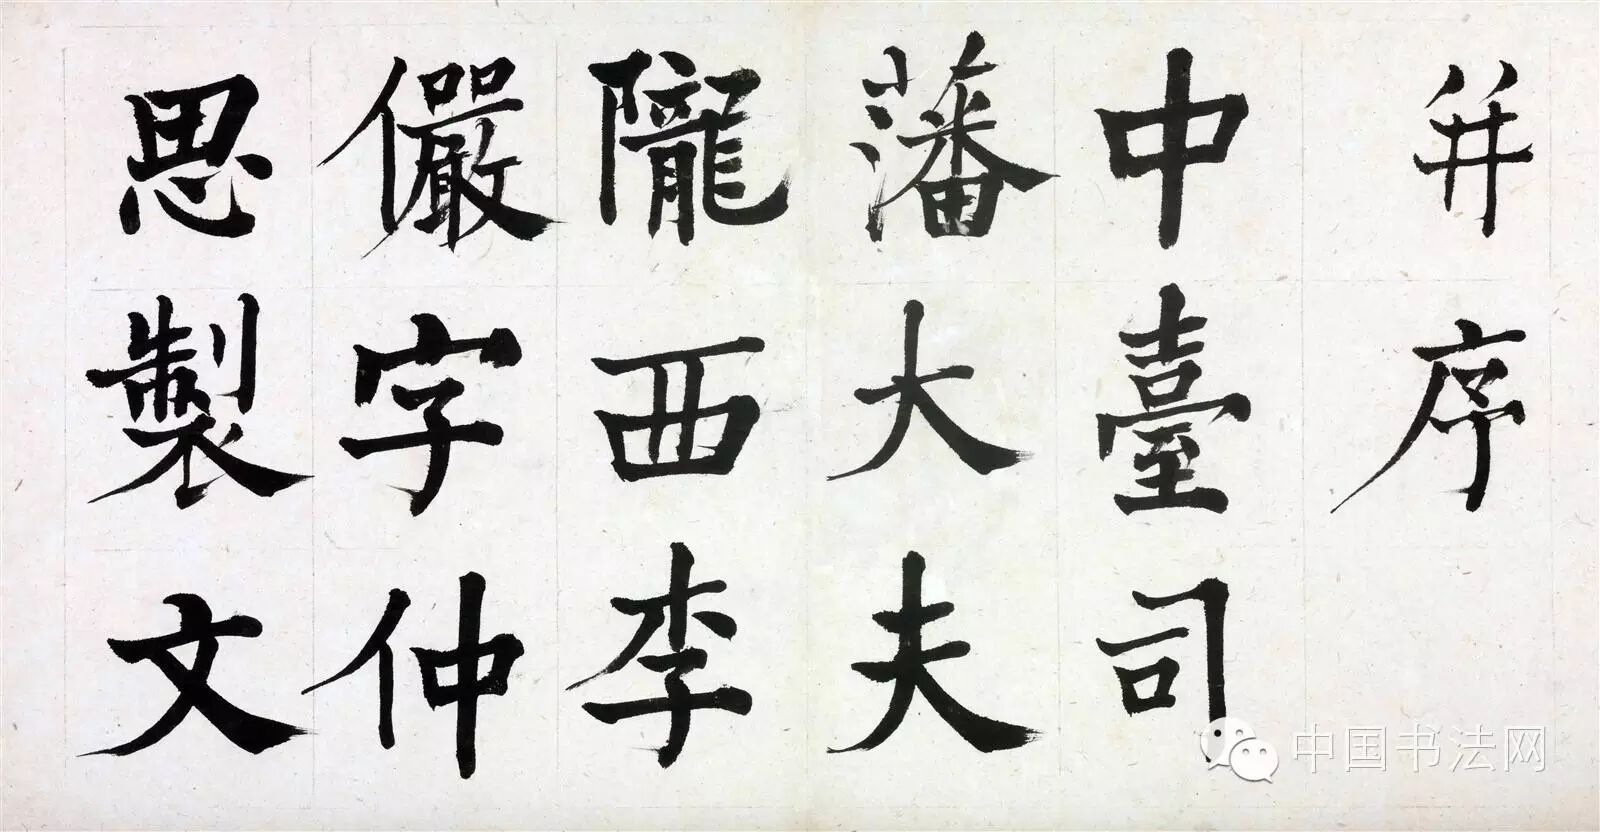 并序
中臺司
藩大夫
隴西李
儼字仲
思製文
中国书法网